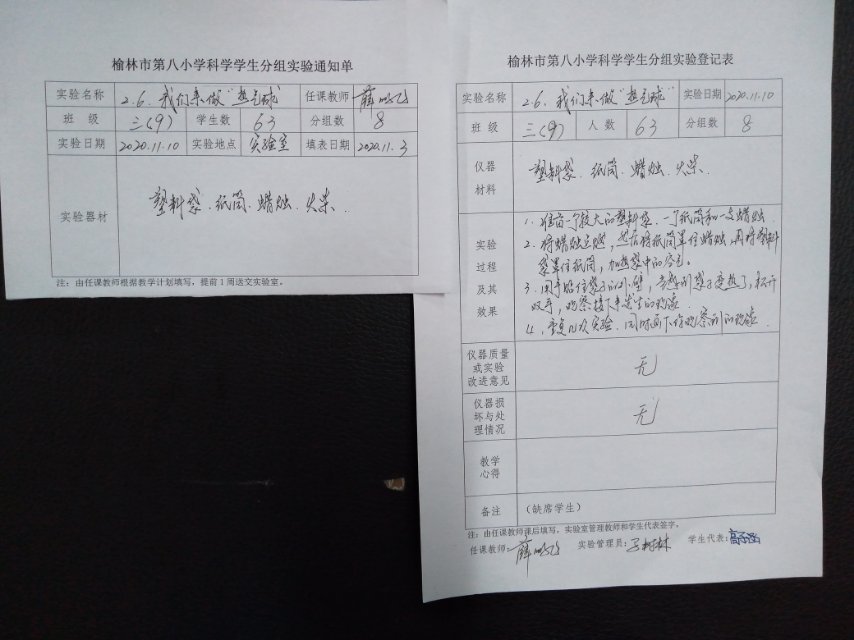 榆林市第八小学科学学生分组实验通知单
实验名称 2.6.我们来做"热气球" 任课教师 薛
班 级 三(9) 学生数 63 分组数 8
实验日期 2020.11.10 实验地点 实验室 填表日期 2020.11.3
实验器材 塑料袋.纸筒.蜡烛.火柴.
注：由任课教师根据教学计划填写，提前1周送交实验室。
榆林市第八小学科学学生分组实验登记表
实验名称 2.6.我们来做"热气球" 实验日期 2020.11.10
班 级 三(9) 人 数 63 分组数 8
仪器
材料
塑料袋.纸筒.蜡烛.火柴.
实验
过程
及其
效果
1.准备一个较大的塑料袋.一个纸筒和一支蜡烛.
2.将蜡烛点燃，然后将纸筒罩住蜡烛，再将塑料
袋罩住纸筒，加热袋中的空气。
3.用手贴住袋子的外壁，感觉到袋子变热了，松开
双手，观察接下来发生的现象
4.重复几次实验.同时画下你观察到的现象.
仪器质量
或实验
改进意见
无
仪器损
坏与处
理情况
无
教学
心得
备注 (缺席学生)
注：由任课教师课后填写，实验室管理教师和学生代表签字。
任课教师: 薛 实验管理员: 学生代表: